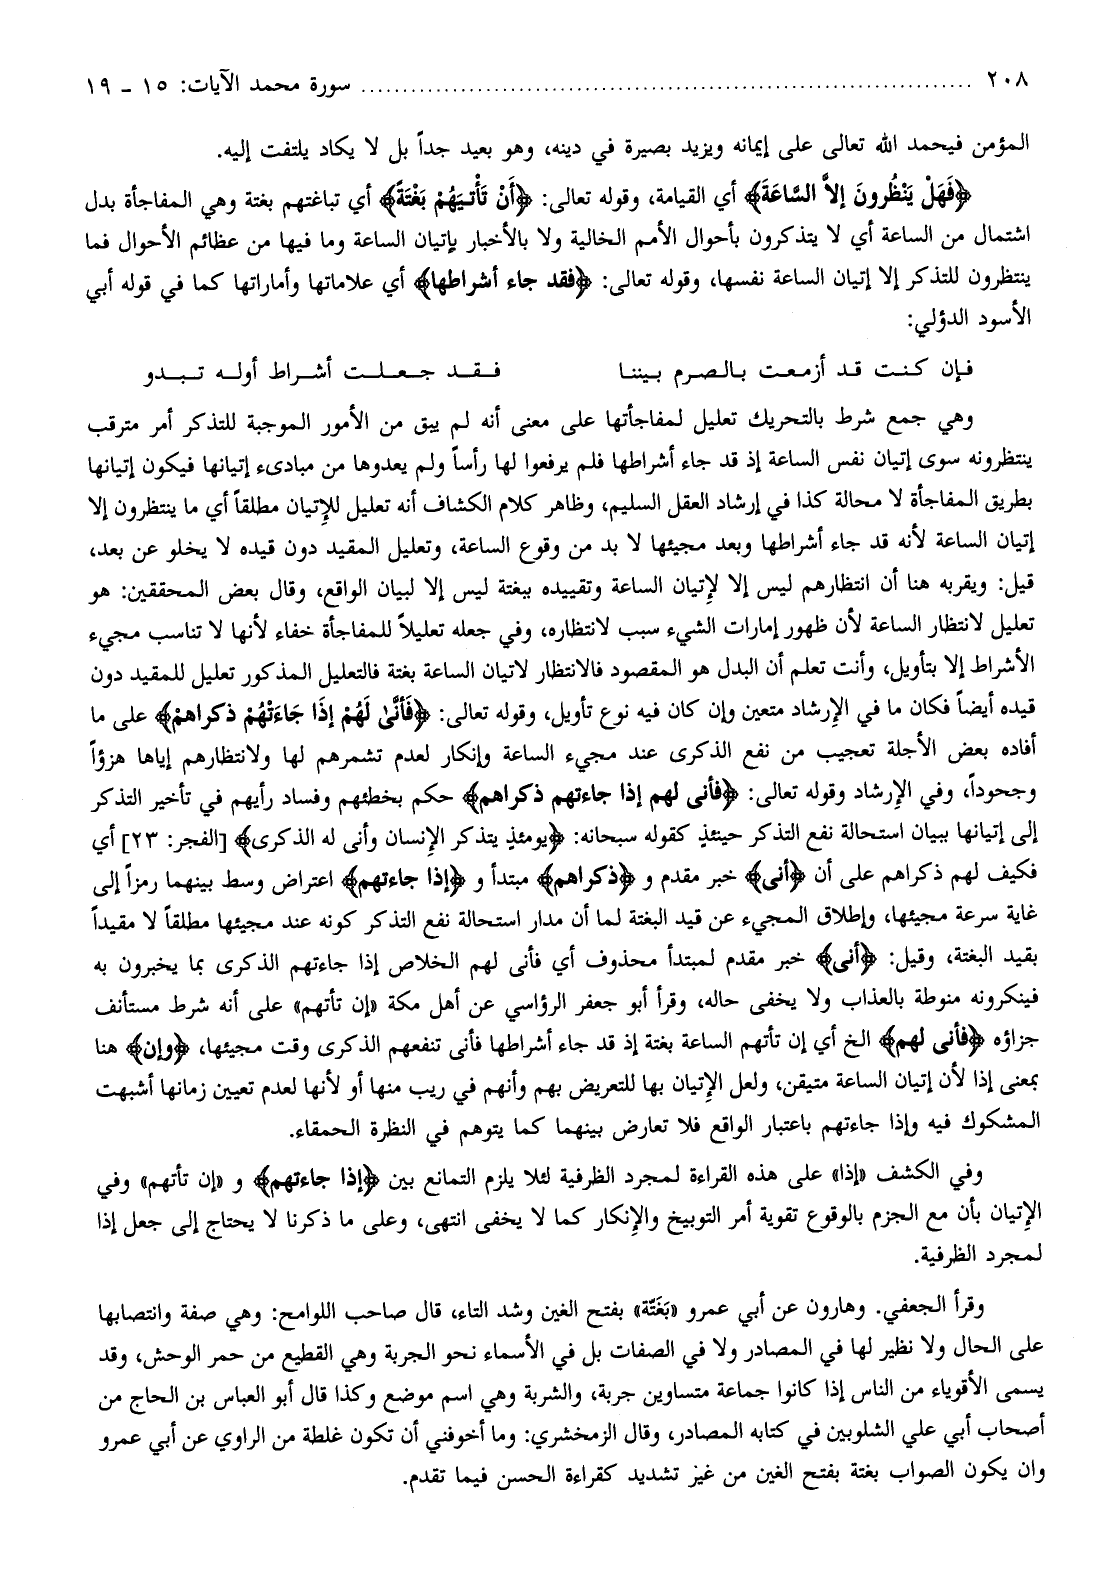 ٢٠٨ ........................................................................ سورة محمد الآيات: ١٥ - ١٩
المؤمن فيحمد الله تعالى على إيمانه ويزيد بصيرة في دينه، وهو بعيد جداً بل لا يكاد يلتفت إليه.
﴿فَهَلْ يَنْظُرونَ إلاَّ السَّاعَةَ﴾ أي القيامة، وقوله تعالى: ﴿أَنْ تَأْتيَهُمْ بَغْتَةً﴾ أي تباغتهم بغتة وهي المفاجأة بدل
اشتمال من الساعة أي لا يتذكرون بأحوال الأمم الخالية ولا بالأخبار بإتيان الساعة وما فيها من عظائم الأحوال فما
ينتظرون للتذكر إلا إتيان الساعة نفسها، وقوله تعالى: ﴿فقد جاء أشراطها﴾ أي علاماتها وأماراتها كما في قوله أبي
الأسود الدؤلي:
فإن كنت قد أزمعت بالصرم بيننا فقد جعلت أشراط أوله تبدو
وهي جمع شرط بالتحريك تعليل لمفاجأتها على معنى أنه لم يبق من الأمور الموجبة للتذكر أمر مترقب
ينتظرونه سوى إتيان نفس الساعة إذ قد جاء أشراطها فلم يرفعوا لها رأساً ولم يعدوها من مبادىء إتيانها فيكون إتيانها
بطريق المفاجأة لا محالة كذا في إرشاد العقل السليم، وظاهر كلام الكشاف أنه تعليل للإتيان مطلقاً أي ما ينتظرون إلا
إتيان الساعة لأنه قد جاء أشراطها وبعد مجيئها لا بد من وقوع الساعة، وتعليل المقيد دون قيده لا يخلو عن بعد،
قيل: ويقربه هنا أن انتظارهم ليس إلا لإتيان الساعة وتقييده ببغتة ليس إلا لبيان الواقع، وقال بعض المحققين: هو
تعليل لانتظار الساعة لأن ظهور إمارات الشيء سبب لانتظاره، وفي جعله تعليلاً للمفاجأة خفاء لأنها لا تناسب مجيء
الأشراط إلا بتأويل، وأنت تعلم أن البدل هو المقصود فالانتظار لاتيان الساعة بغتة فالتعليل المذكور تعليل للمقيد دون
قيده أيضاً فكان ما في الإرشاد متعين وإن كان فيه نوع تأويل، وقوله تعالى: ﴿فَأَنَّىٰ لَهُمْ إذَا جَاءَتْهُمْ ذكراهمْ﴾ على ما
أفاده بعض الأجلة تعجيب من نفع الذكرى عند مجيء الساعة وإنكار لعدم تشمرهم لها ولانتظارهم إياها هزؤاً
وجحوداً، وفي الإرشاد وقوله تعالى: ﴿فأنى لهم إذا جاءتهم ذكراهم﴾ حكم بخطئهم وفساد رأيهم في تأخير التذكر
إلى إتيانها ببيان استحالة نفع التذكر حينئذٍ كقوله سبحانه: ﴿يومئذٍ يتذكر الإنسان وأنى له الذكرى﴾ [الفجر: ٢٣] أي
فكيف لهم ذكراهم على أن ﴿أنى﴾ خبر مقدم و ﴿ذكراهم﴾ مبتدأ و ﴿إذا جاءتهم﴾ اعتراض وسط بينهما رمزاً إلى
غاية سرعة مجيئها، وإطلاق المجيء عن قيد البغتة لما أن مدار استحالة نفع التذكر كونه عند مجيئها مطلقاً لا مقيداً
بقيد البغتة، وقيل: ﴿أنى﴾ خبر مقدم لمبتدأ محذوف أي فأنى لهم الخلاص إذا جاءتهم الذكرى بما يخبرون به
فينكرونه منوطة بالعذاب ولا يخفى حاله، وقرأ أبو جعفر الرؤاسي عن أهل مكة «إن تأتهم» على أنه شرط مستأنف
جزاؤه ﴿فأنى لهم﴾ الخ أي إن تأتهم الساعة بغتة إذ قد جاء أشراطها فأنى تنفعهم الذكرى وقت مجيئها، ﴿وإن﴾ هنا
بمعنى إذا لأن إتيان الساعة متيقن، ولعل الإتيان بها للتعريض بهم وأنهم في ريب منها أو لأنها لعدم تعيين زمانها أشبهت
المشكوك فيه وإذا جاءتهم باعتبار الواقع فلا تعارض بينهما كما يتوهم في النظرة الحمقاء.
وفي الكشف «إذا» على هذه القراءة لمجرد الظرفية لئلا يلزم التمانع بين ﴿إذا جاءتهم﴾ و «إن تأتهم» وفي
الإتيان بأن مع الجزم بالوقوع تقوية أمر التوبيخ والإنكار كما لا يخفى انتهى، وعلى ما ذكرنا لا يحتاج إلى جعل إذا
لمجرد الظرفية.
وقرأ الجعفي. وهارون عن أبي عمرو «بَغَتّة» بفتح الغين وشد التاء، قال صاحب اللوامح: وهي صفة وانتصابها
على الحال ولا نظير لها في المصادر ولا في الصفات بل في الأسماء نحو الجربة وهي القطيع من حمر الوحش، وقد
يسمى الأقوياء من الناس إذا كانوا جماعة متساوين جربة، والشربة وهي اسم موضع وكذا قال أبو العباس بن الحاج من
أصحاب أبي علي الشلوبين في كتابه المصادر، وقال الزمخشري: وما أخوفني أن تكون غلطة من الراوي عن أبي عمرو
وان يكون الصواب بغتة بفتح الغين من غيز تشديد كقراءة الحسن فيما تقدم.